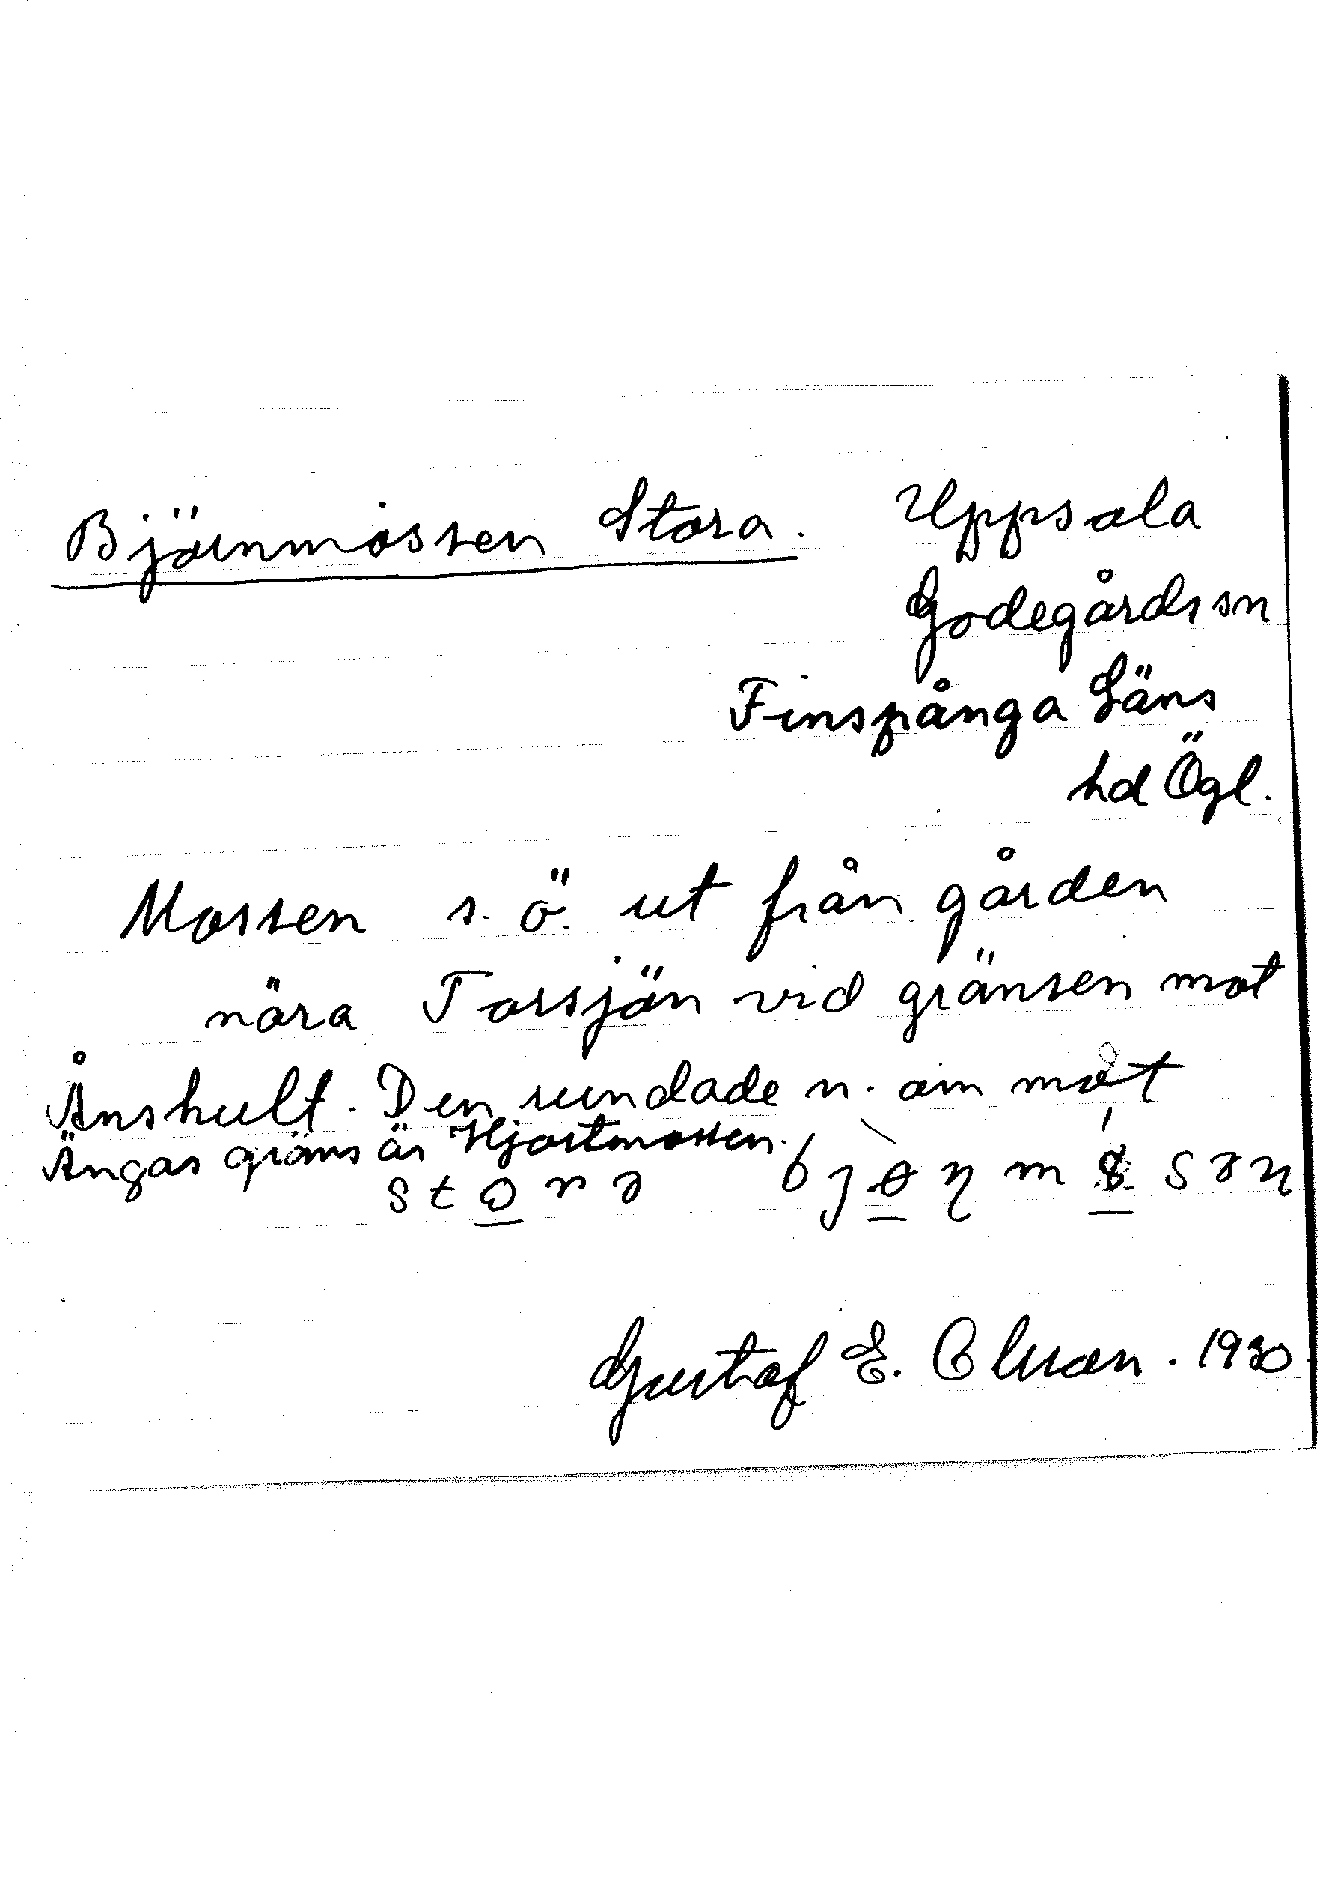 Björnmossen Stora. Uppsala
Godegårds sn
Finspånga Läns
hd Ögl.
Mossen s. ö. ut från gården
nära Torsjön vid gränsen mot
Ånshult. Den rundade n. om mot
Ängas gräns är Hjortmossen.
Gustaf E. Olsson. 1930